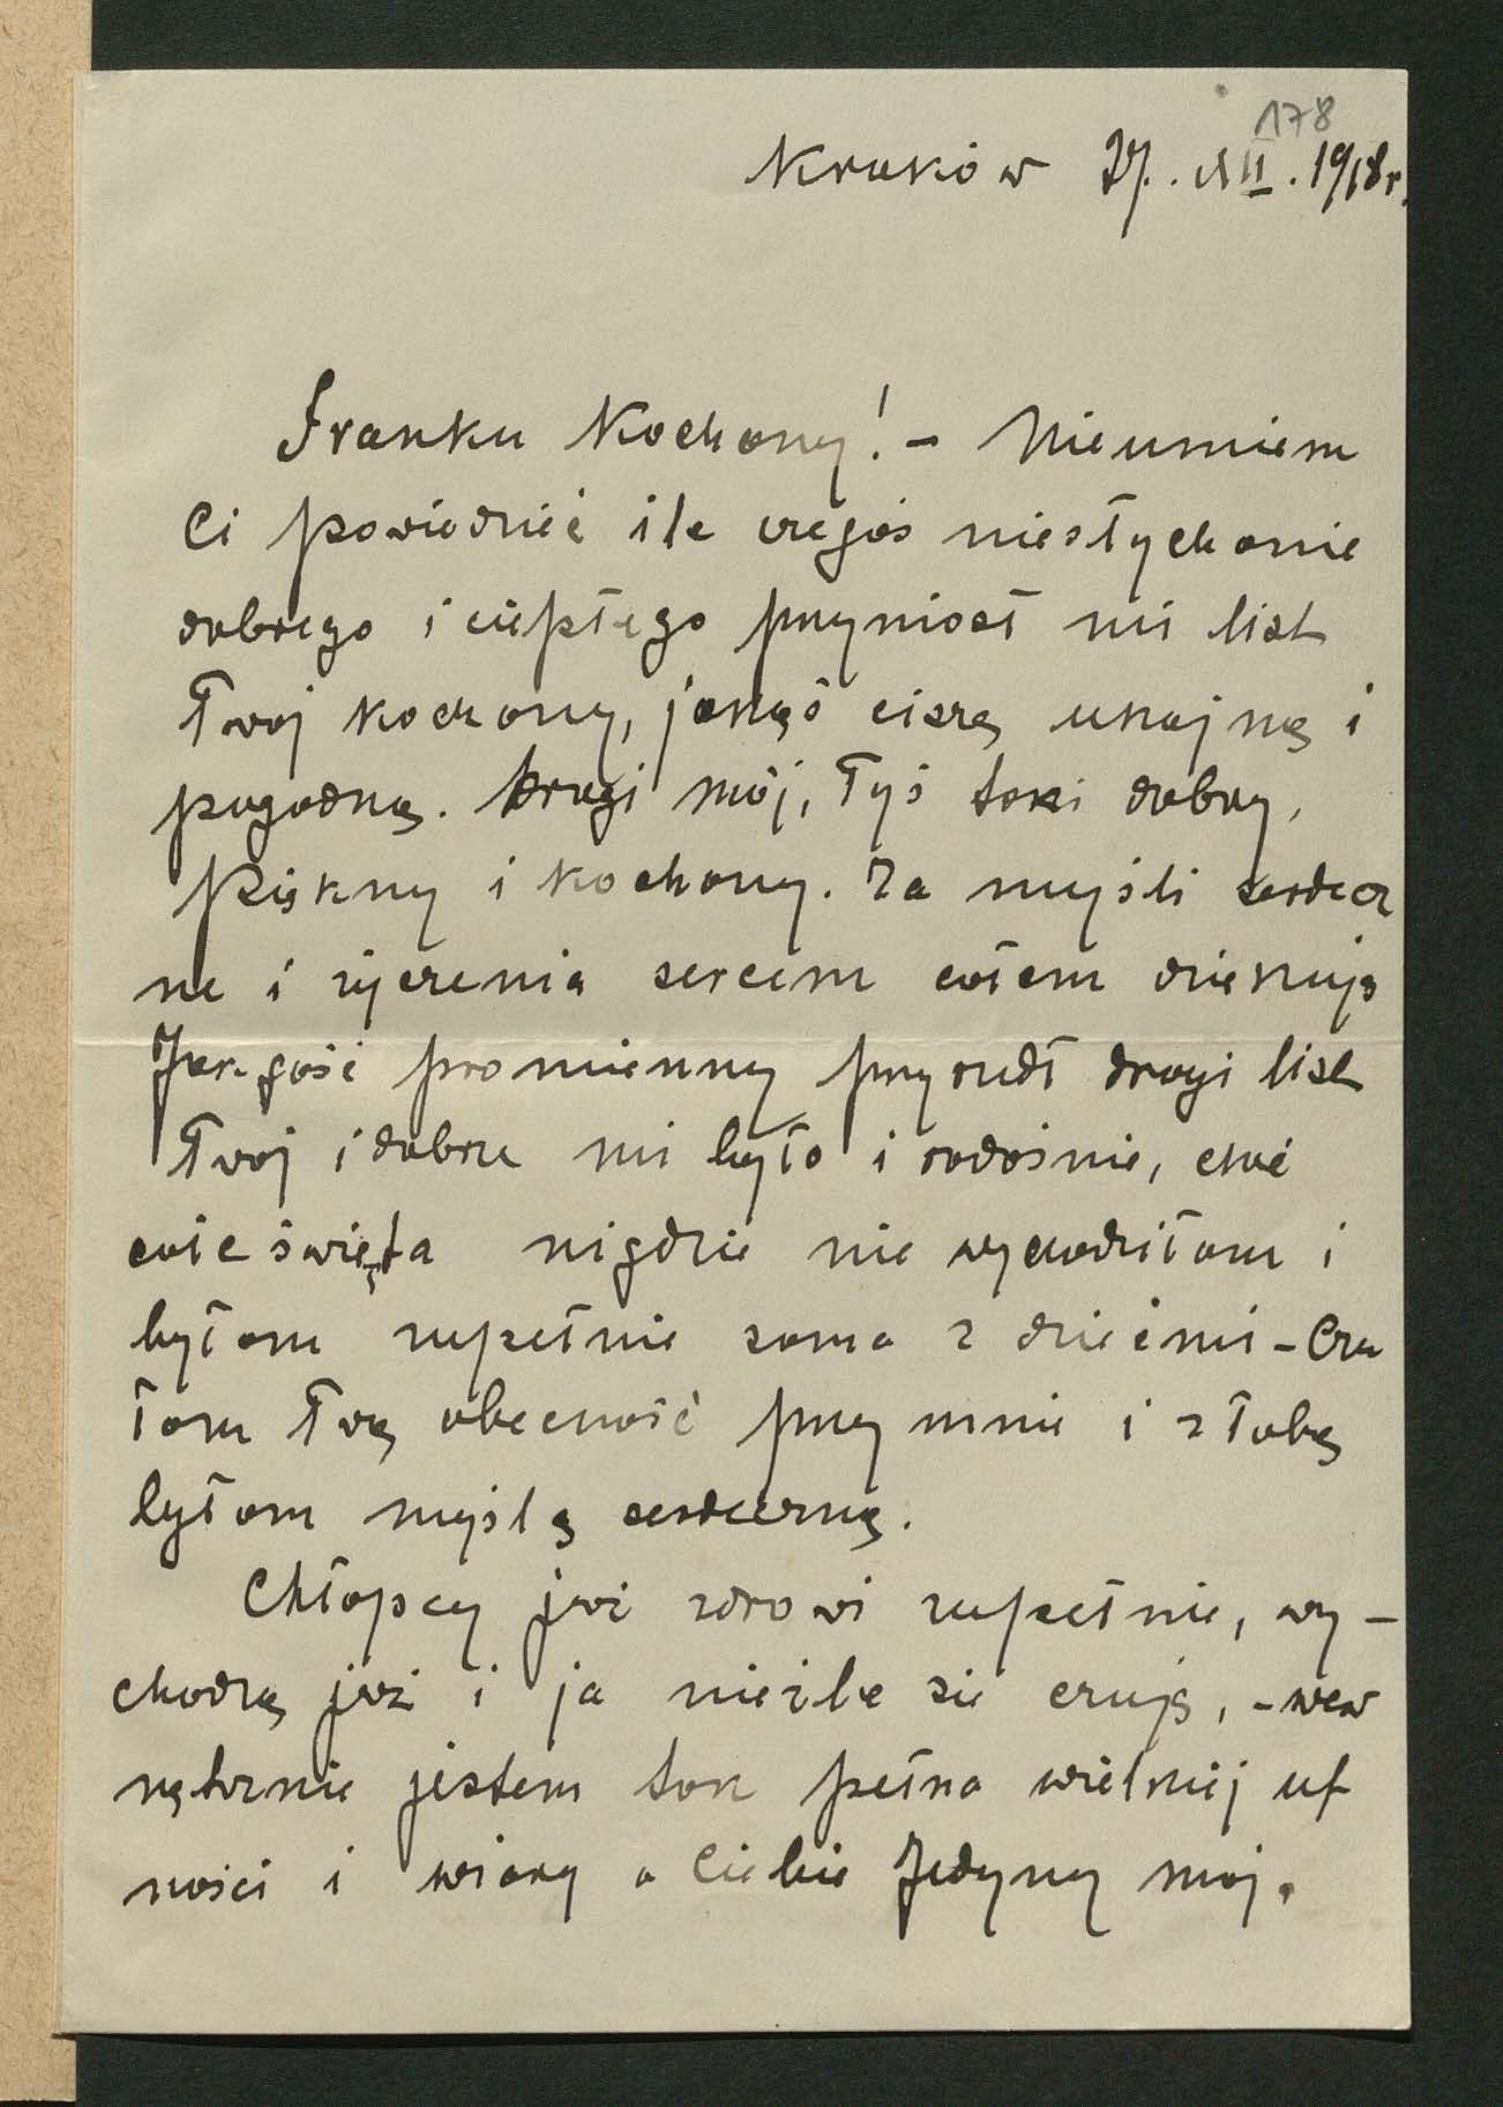 178
Kraków 27. XII. 1918 r.
Franku Kochany! – Nieumiem
Ci powiedzieć ile czegoś niesłychanie
dobrego i ciepłego przyniosł mi list
Twoj kochany, jakąś ciszę ukojną i
pogodną. Drogi mój, Tyś taki dobry,
piękny i kochany. Za myśli serdecz
ne i życzenia sercem całem dziekuję
Jak gość promienny przyszedł drogi list
Twoj i dobrze mi było i radośnie, choć
całe święta nigdzie nie wychodziłam i
byłam zupełnie sama z dziećmi – Czu
łam Twą obecność przy mnie i z Tobą
byłam myślą serdeczną.
Chłopcy już zdrowi zupełnie, wy –
chodzą już i ja nieźle sie czuję, – wew
nętrznie jestem tak pełna wielkiej uf
ności i wiary o Ciebie Jedyny moj.